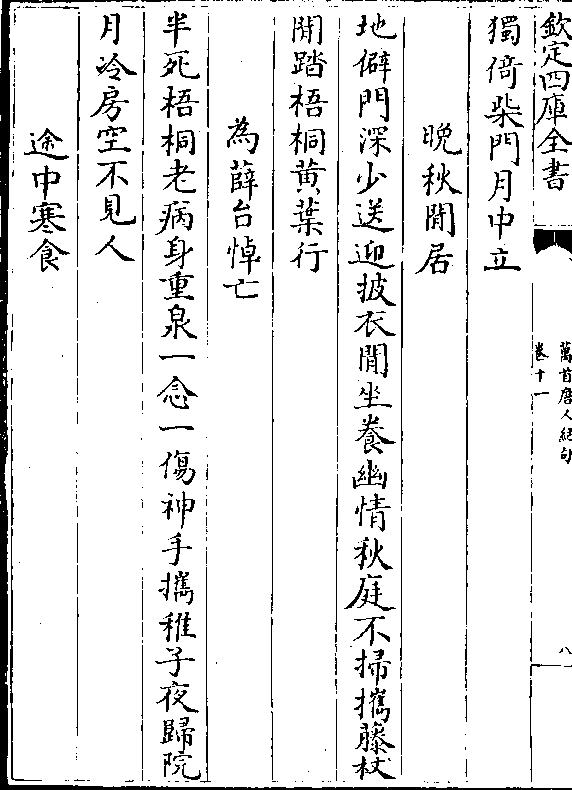 欽定四庫全書
萬首唐人絕句
卷十一
八
獨倚柴門月中立
晚秋閒居
地僻門深少送迎披衣閒坐養幽情秋庭不掃攜藤杖
閒踏梧桐黃葉行
為薛台悼亡
半死梧桐老病身重泉一念一傷神手攜稚子夜歸院
月冷房空不見人
途中寒食